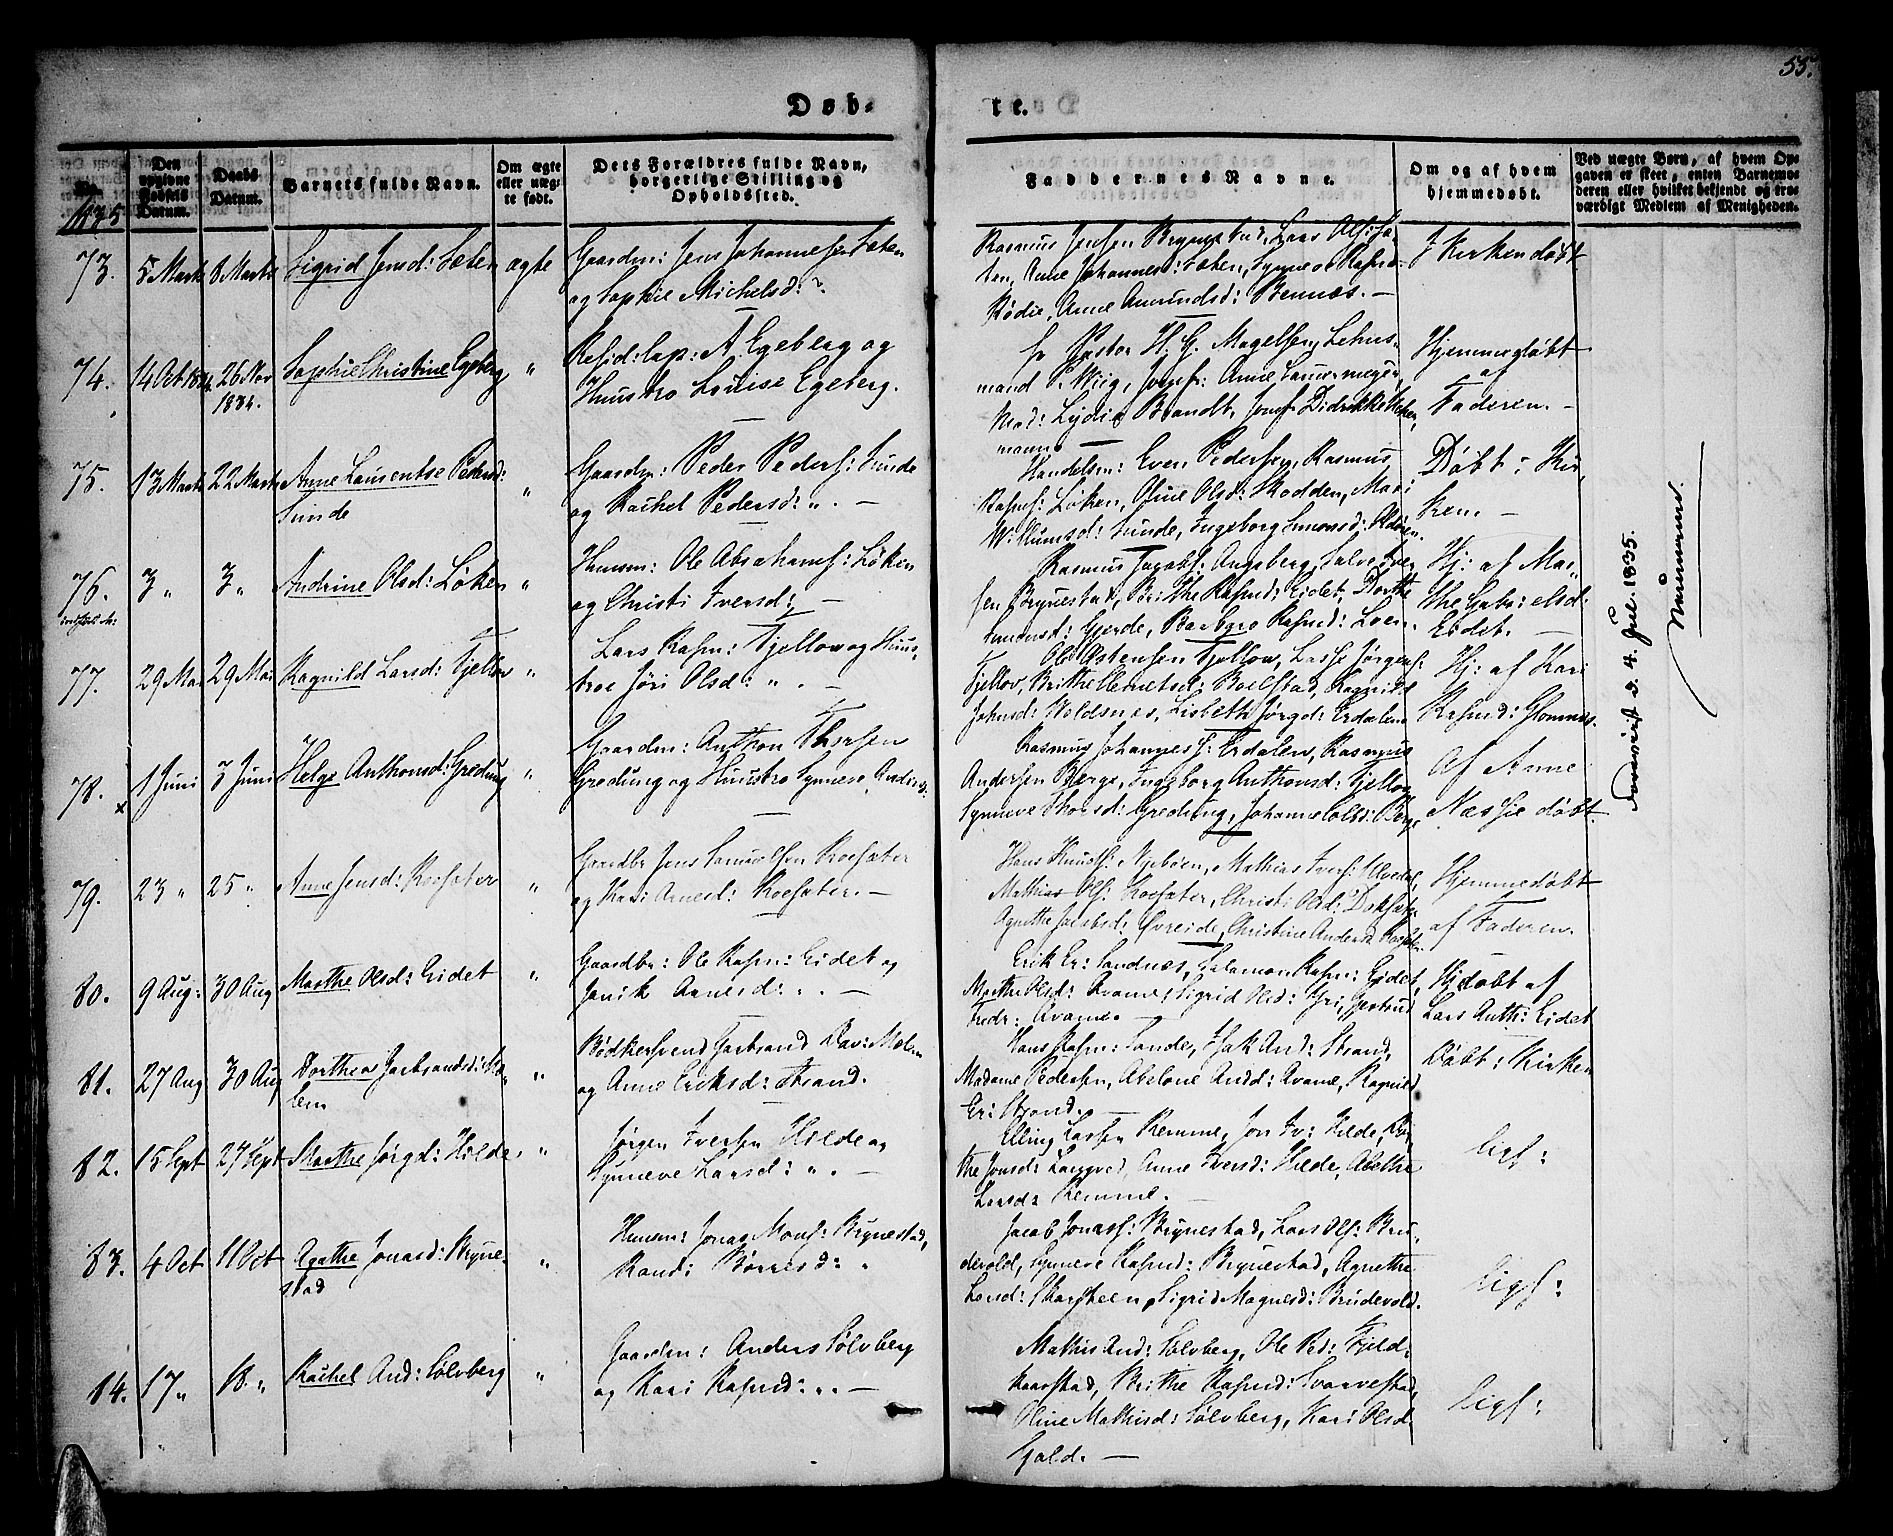 55.
Døb-
te.
No.
1835
Den opgivne Fødsels Datum.
Daabs Datum.
Barnets fulde Navn.
Om ægte eller uægte født.
Dets Forældres fulde Navn, borgerlige Stilling og Opholdssted.
Faddernes Navne.
Om og af hvem hjemmedøbt.
Ved uægte Børn, af hvem Opgaven er skeet, enten Barnemoderen eller hvilket bekjendt og troværdigt Medlem af Menigheden.
73.
5 Marts
8 Marts
Sigrid Jensd: Sæten
ægte
Gaardm: Jens Johannesen Sæten
og Sophie Michelsd:
Rasmus Jensen Brynestad, Lars Ols: Sæ-
ten, Anne Johannesd: Sæten, Synneve Rasmd:
Rødie, Anne Amundsd: Bennes. —
I Kirken døbt
74.
14 Oct 1834
26 Nov
1834.
Sophie Christine Egeberg
"
Resid: Cap: A Egeberg og
Huustro Louise Egeberg.
Hr Pastor H. G. Magelsen, Lehns-
mand P. Wiig, Jomfr: Anne
Mad: Lydia Brandt, Jomf: Didrikke
mann
Hjemmedøbt
af
Faderen. —
75.
13 Marts
22 Marts
Anne Laurentse Pedersd:
Sunde
"
Gaardm: Peder Peders: Sunde
og Rachel Pedersd: " . —
Handelsm: Even Pedersen, Rasmus
Rasms: Løken, Oline Olsd: Skodden, Mari
Willumsd: Sunde, Ingeborg Simonsd: Olden.
Døbt i Kir-
ken. —
76.
3 "
3 "
Andrine Olsd: Løken
"
Huusm: Ole Abrahams: Løken
og Christi Iversd: —
Rasmus Jacobs: Augsberg,
sen Brynestad, Brithe Rasmd: Eidet, Dorthe
Simonsd: Gjerde, Barbgro Rasmd: Loen.
Hj: af Mar-
the Gabr:elsd:
Eidet. —
77.
29 Mai
29 Mai
Ragnild Larsd: Fjelløv
"
Lars Rasm: Fjelløv og Huus-
troe Jøri Olsd: " . —
Ole Ostensen Fjelløv, Lasse Jørgens:
Fjelløv, Brithe Clemetsd: Bolstad, Ragnild
Johnsd: Woldsnes, Lisbeth Jørgd: Erdalen
Hj: af Kari
Rasmd: Glomnes.
78.
1 Juni
3 Juni
Helge Anthonsd: Gredung
"
Gaardm: Anthon Thorsen
Gredung og Huustro Synneve Andersd:
Rasmus Johannes: Erdalen, Rasmus
Andersen Berge, Ingeborg Anthonsd: Fjelløv
Synneve Thorsd: Gredung, Johanne Colbd: Berge
Af Anne
Næssje døbt.
79.
23 "
25 "
Anne Jensd: Roesæter
"
Gaardbr Jens Samuelsen Roesæter
og Kari Arnesd: Roesæter. —
Hans Knuds: Nyebøen, Mathias Ivers: Ulvedal,
Mathias Ols: Roesæter, Christi Olsd: Doksæter
Agnethe Jacobsd: Øvreide, Christine Andersd: Roesæter
Hjemmedøbt
af Faderen.
80.
9 Aug:
30 Aug
Marthe Olsd: Eidet
"
Gaardbr: Ole Rasm: Eidet og
Janik Arnesd: " . —
Erik Er: Sandnæs, Salamon Rasm: Eidet,
Marthe Olsd: Avame, Sigrid Olsd: Yri, Gjertrud
Fredr: Avame. —
Hj døbt af
Lars Anth: Eidet
81.
27 Aug
30 Aug
Dorthea Garbrandsd: Mo-
len
"
Bødkersvend Garbrand Dav: Molen
og Anne Eriksd: Strand.
Hans Rasm: Sande, Isak And: Strand,
Madame Pedersen, Abelone Andd: Avame, Ragnild
Er: Strand. —
Døbt i Kirken
82.
15 Sept
27 Sept
Marthe Jørgd: Hilde
"
Jørgen Iversen Hilde og
Synneve Larsd: " . —
Elling Larsen Remme, Jon Iv: Hilde, Bri-
the Jonsd: Langved, Anne Iversd: Hilde, Abelthe
Larsd: Remme.
Ligs:
83.
4 Oct
11 Oct
Agathe Jonasd: Bryne-
stad
"
Huusm: Jonas Mons: Brynestad,
Randi Børresd: "
Jacob Jonass: Brynestad, Lars Ols: Bru-
devold, Synneve Rasmd: Brynestad, Agnethe
Larsd: Skarsteen, Sigrid Magnesd: Brudevold.
Ligs:
84.
17 "
18. "
Rachel And: Sølvberg
"
Gaardm: Anders Sølvberg
og Kari Rasmd: " . —
Mathis And: Sølvberg, Ole Ped: Fjeld-
kaarstad, Brithe Rasmd: Svarvestad,
Oline Mathisd: Sølvberg, Kari Olsd
Gjald. —
Ligs:
d. 4. Jul. 1835.